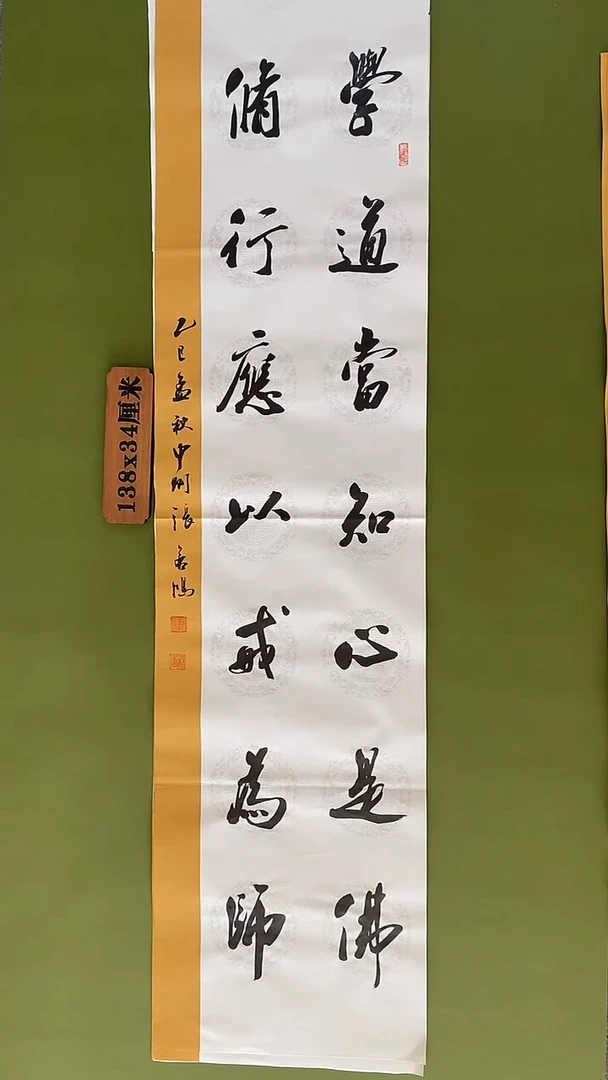 學道當知心是佛
脩行應以戒為師
乙巳孟秋中州張
138x34厘米